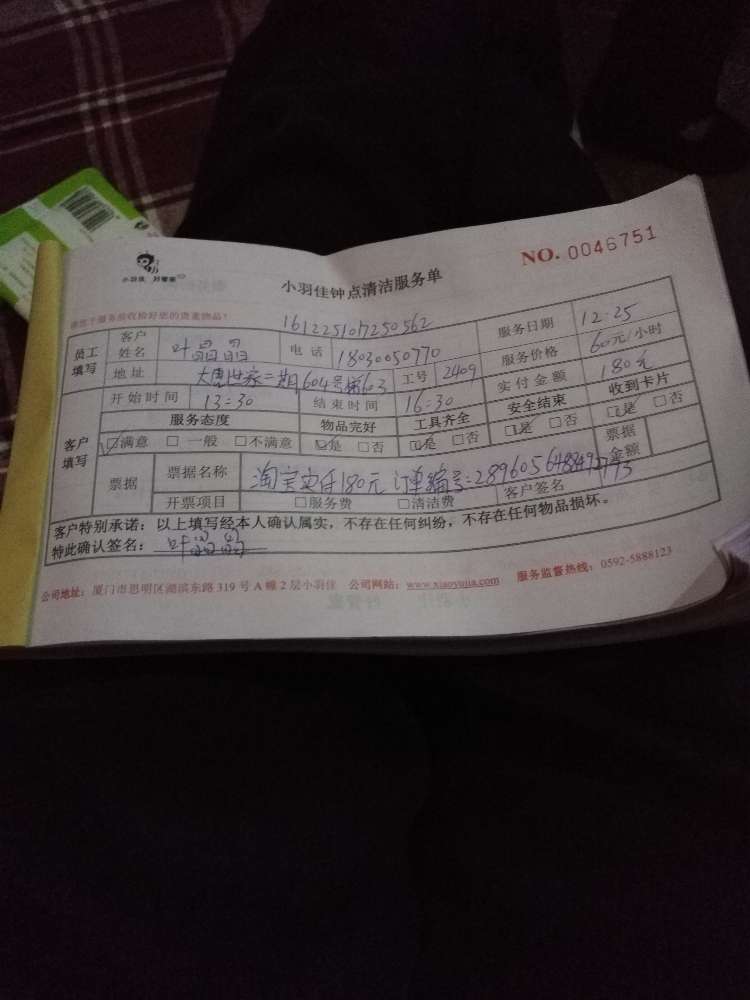 小羽佳 好管家
NO. 0046751
小羽佳钟点清洁服务单
161225107250562
员工填写 客户姓名 叶晶晶 电话 18030050770 服务日期 12:25
地址 大唐世家二期604号楼603 工号 2409 服务价格 60元/小时
开始时间 13:30 结束时间 16:30 实付金额 180元
客户填写 服务态度 物品完好 工具齐全 安全结束 收到卡片
☑满意 □一般 □不满意 ☑是 □否 ☑是 □否 ☑是 □否 ☑是 □否
票据 票据名称 淘宝实付180元 订单编号: 票据金额
开票项目 □服务费 □清洁费 客户签名
客户特别承诺:以上填写经本人确认属实,不存在任何纠纷,不存在任何物品损坏。
特此确认签名: 叶晶晶
公司地址:厦门市思明区湖滨东路319号A幢2层小羽佳 公司网站:www.xiaoyujia.com 服务监督热线:0592-5888123